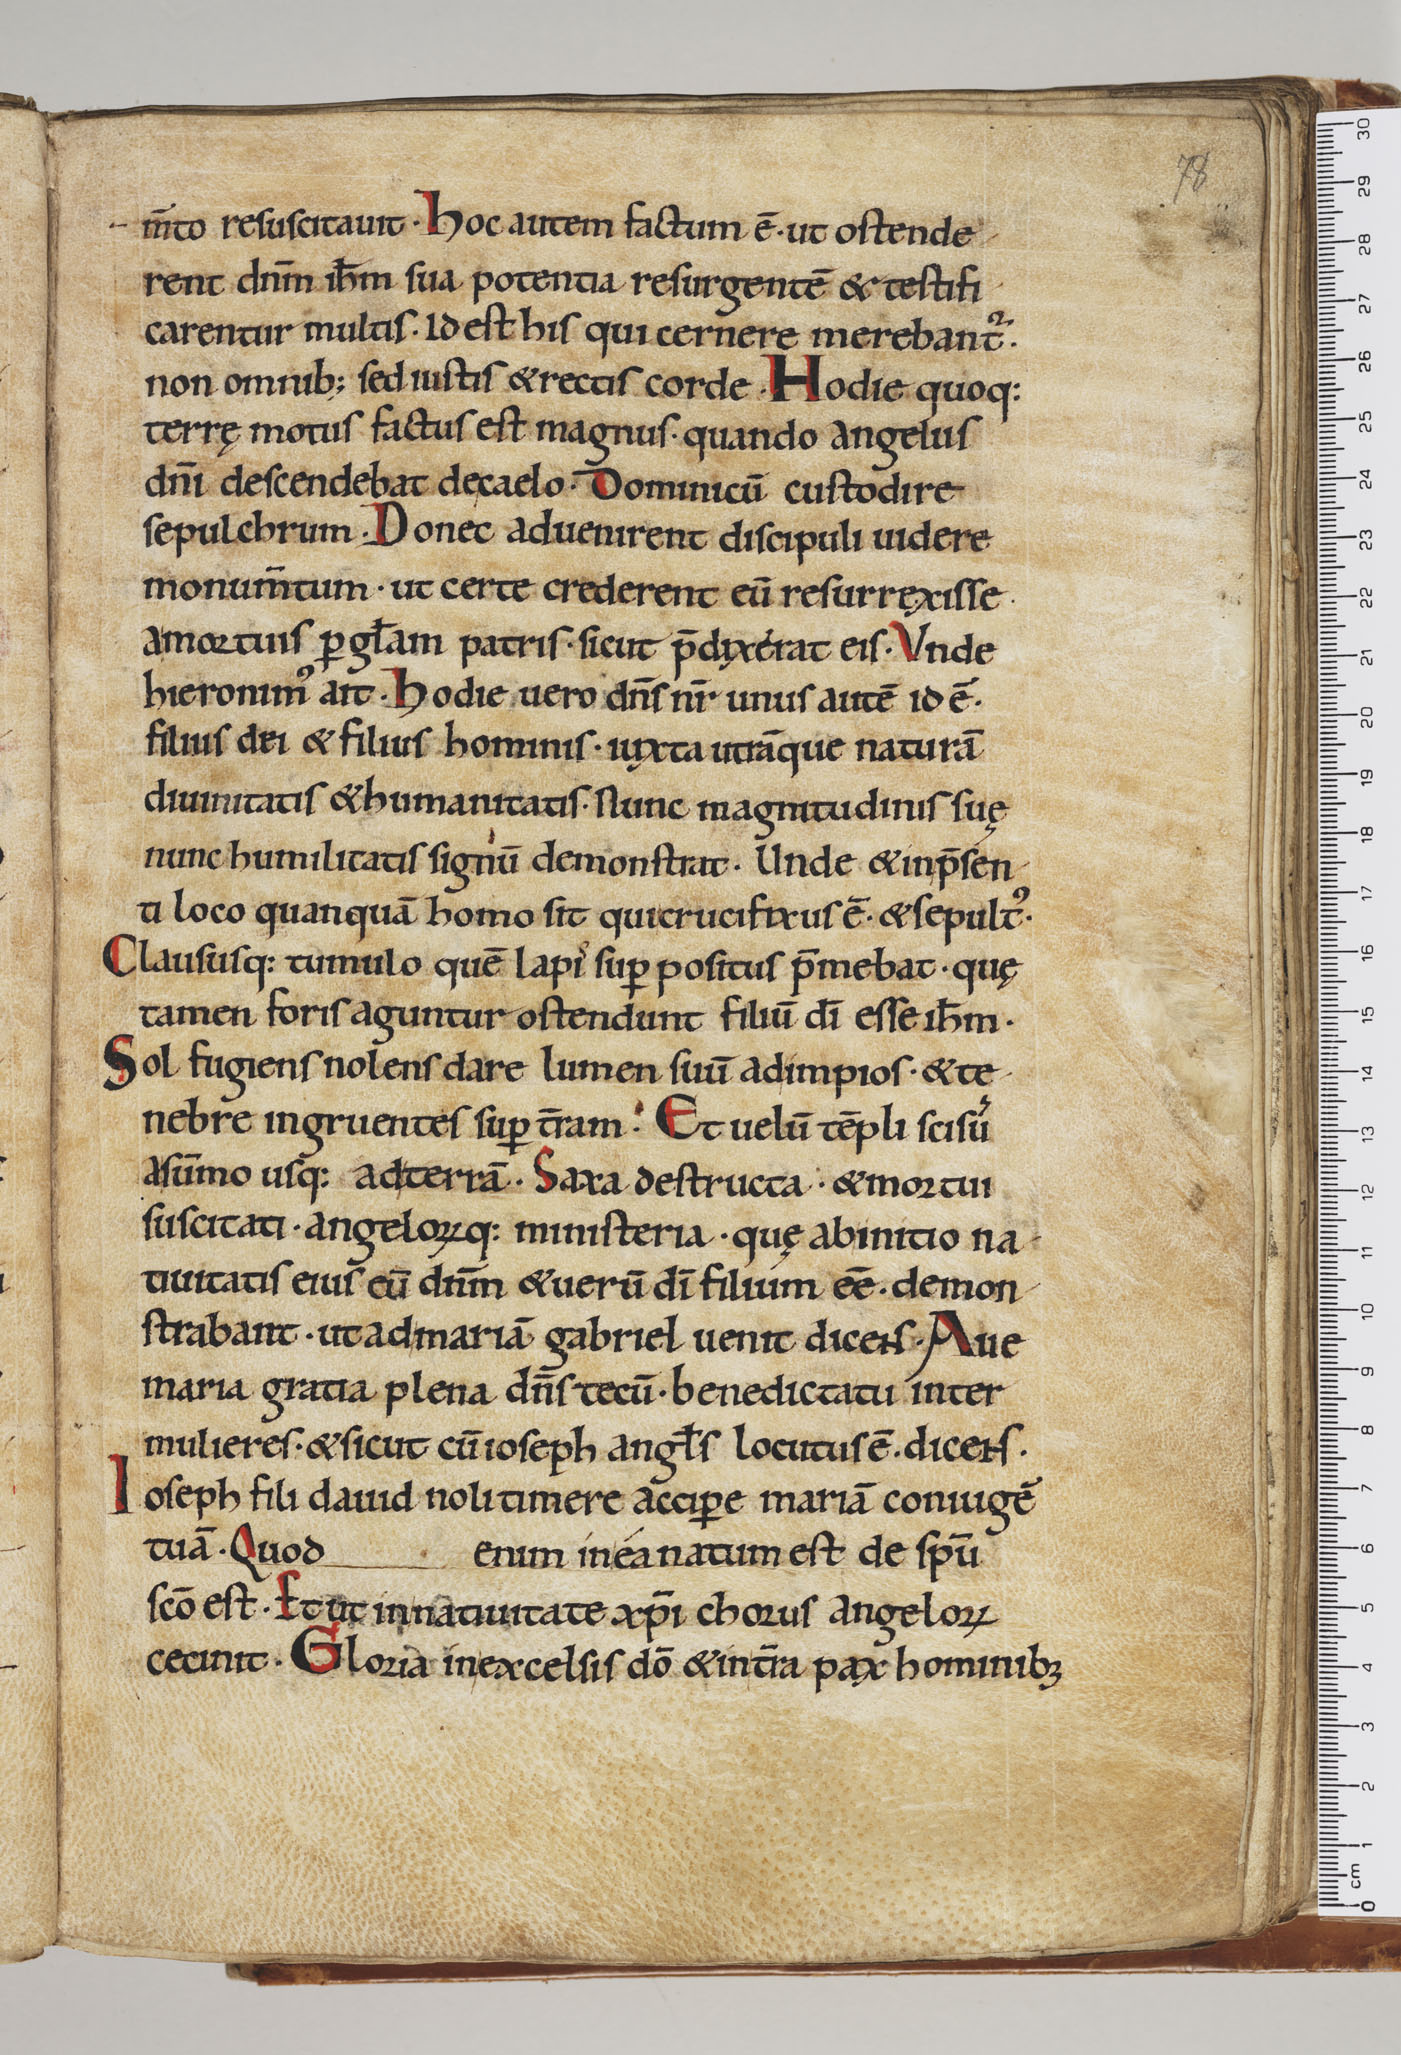 78
m̅to resuscitauit · Hoc autem factum e̅ · ut ostende
rent dn̅m ih̅m sua potentia resurgente̅ & testifi
carentur multis · Id est his qui cernere merebant᷑ ·
non omnib; sed iustis & rectis corde · Hodie quoq:
terrę motus factus est magnus · quando angelus
dn̅i descendebat de caelo · Dominicu̅ custodire
sepulchrum · Donec aduenirent discipuli uidere
monum̅tum · ut certe crederent eu̅ resurrexisse ·
a mortuis ꝑ gł̅am patris · sicut p̅dixerat eis · Vnde
hieronimꝰ ait · Hodie uero dn̅s nr̅ unus aute̅ id e̅ ·
filius dei & filius hominis · iuxta utra̅que natura̅
diuinitatis & humanitatis · Nunc magnitudinis suę
nunc humilitatis signu̅ demonstrat · Unde & in p̅sen
ti loco quanqua̅ homo sit qui crucifixus e̅ · & sepultꝰ ·
Claususq: tumulo que̅ lapis suꝑ positus p̅mebat · quę
tamen foris aguntur ostendunt filiu̅ di̅ esse ih̅m ·
Sol fugiens nolens dare lumen suu̅ ad impios · & te
nebre ingruentes suꝑ tr̅am · Et uelu̅ te̅pli scisu̅
a su̅mo usq: ad terra̅ · Saxa destructa · & mortui
suscitati · angeloꝝq: ministeria · quę ab initio na
tiuitatis eius eu̅ dn̅m & ueru̅ di̅ filium ee̅ · demon
strabant · ut ad maria̅ gabriel uenit dicens · Aue
maria gratia plena dn̅s tecu̅ · benedicta tu inter
mulieres · & sicut cu̅ ioseph angł̅s locutus e̅ · dicens ·
Ioseph fili dauid noli timere acciꝑe maria̅ coniuge̅
tua̅ · Quod enim in ea natum est de spu̅
sco̅ est · Et ut in natiuitate xp̅i chorus angeloꝝ
cecinit · Gloria in excelsis do̅ & in tr̅a pax hominibꝫ